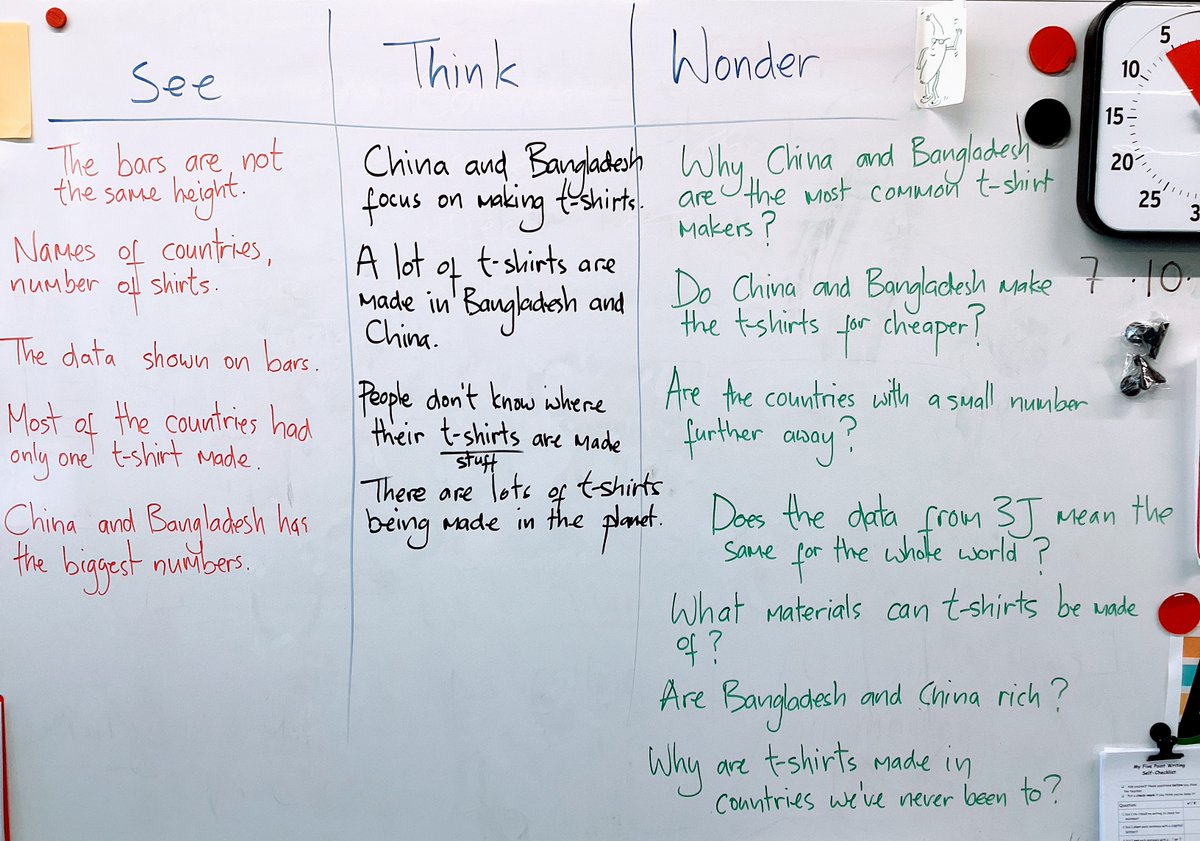 See
The bars are not
the same height.
Names of countries,
number of shirts.
The data shown on bars.
Most of the countries had
only one t-shirt made.
China and Bangladesh has
the biggest numbers.
Think
China and Bangladesh
focus on making t-shirts.
A lot of t-shirts are
made in Bangladesh and
China.
People don't know where
their t-shirts are made
stuff
There are lots of t-shirts
being made in the planet.
Wonder
Why China and Bangladesh
are the most common t-shirt
makers?
Do China and Bangladesh make
the t-shirts for cheaper?
Are the countries with a small number
further away?
Does the data from 3J mean the
same for the whole world?
What materials can t-shirts be made
of?
Are Bangladesh and China rich?
Why are t-shirts made in
countries we've never been to?
5
10
15
20
25
3
7 .10.
My Five Point Writing
Self-Checklist